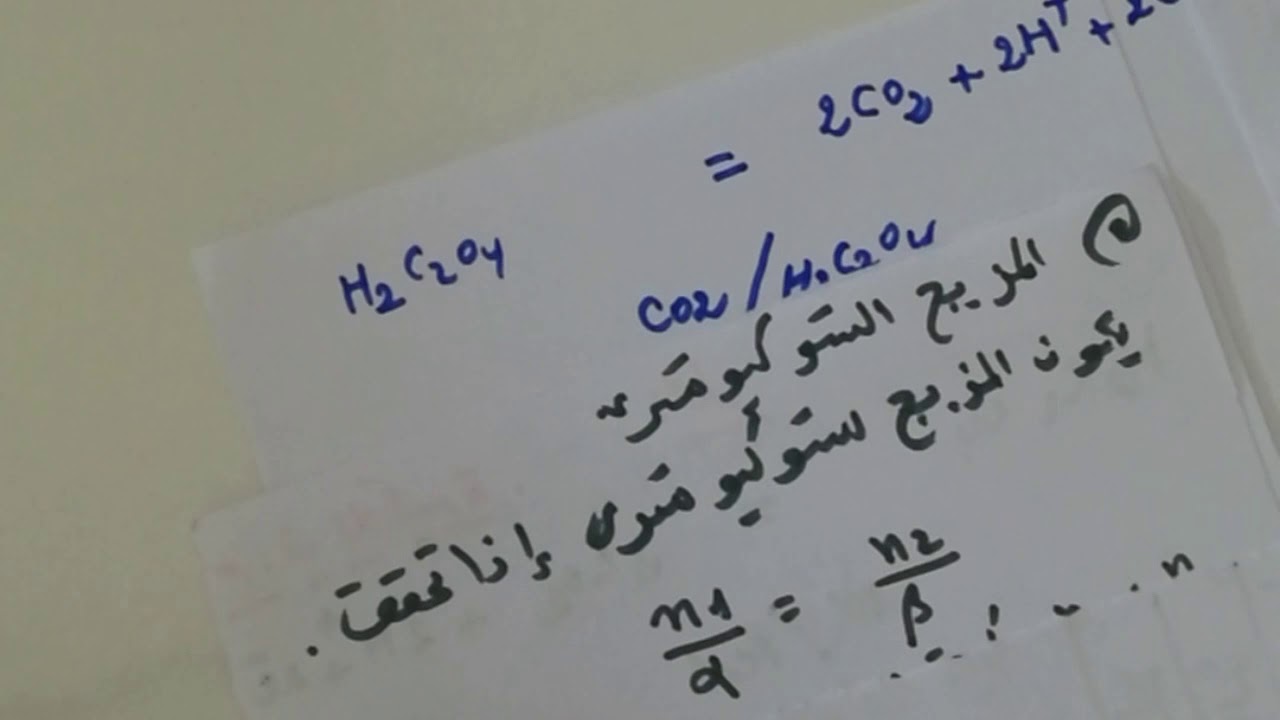 H2C2O4 = 2CO2 + 2H+ + 2
CO2/H2C2O4
المزيج الستوكيومتري
يكون المزيج ستوكيومتري إذا تحقق.
n1/α = n2/β